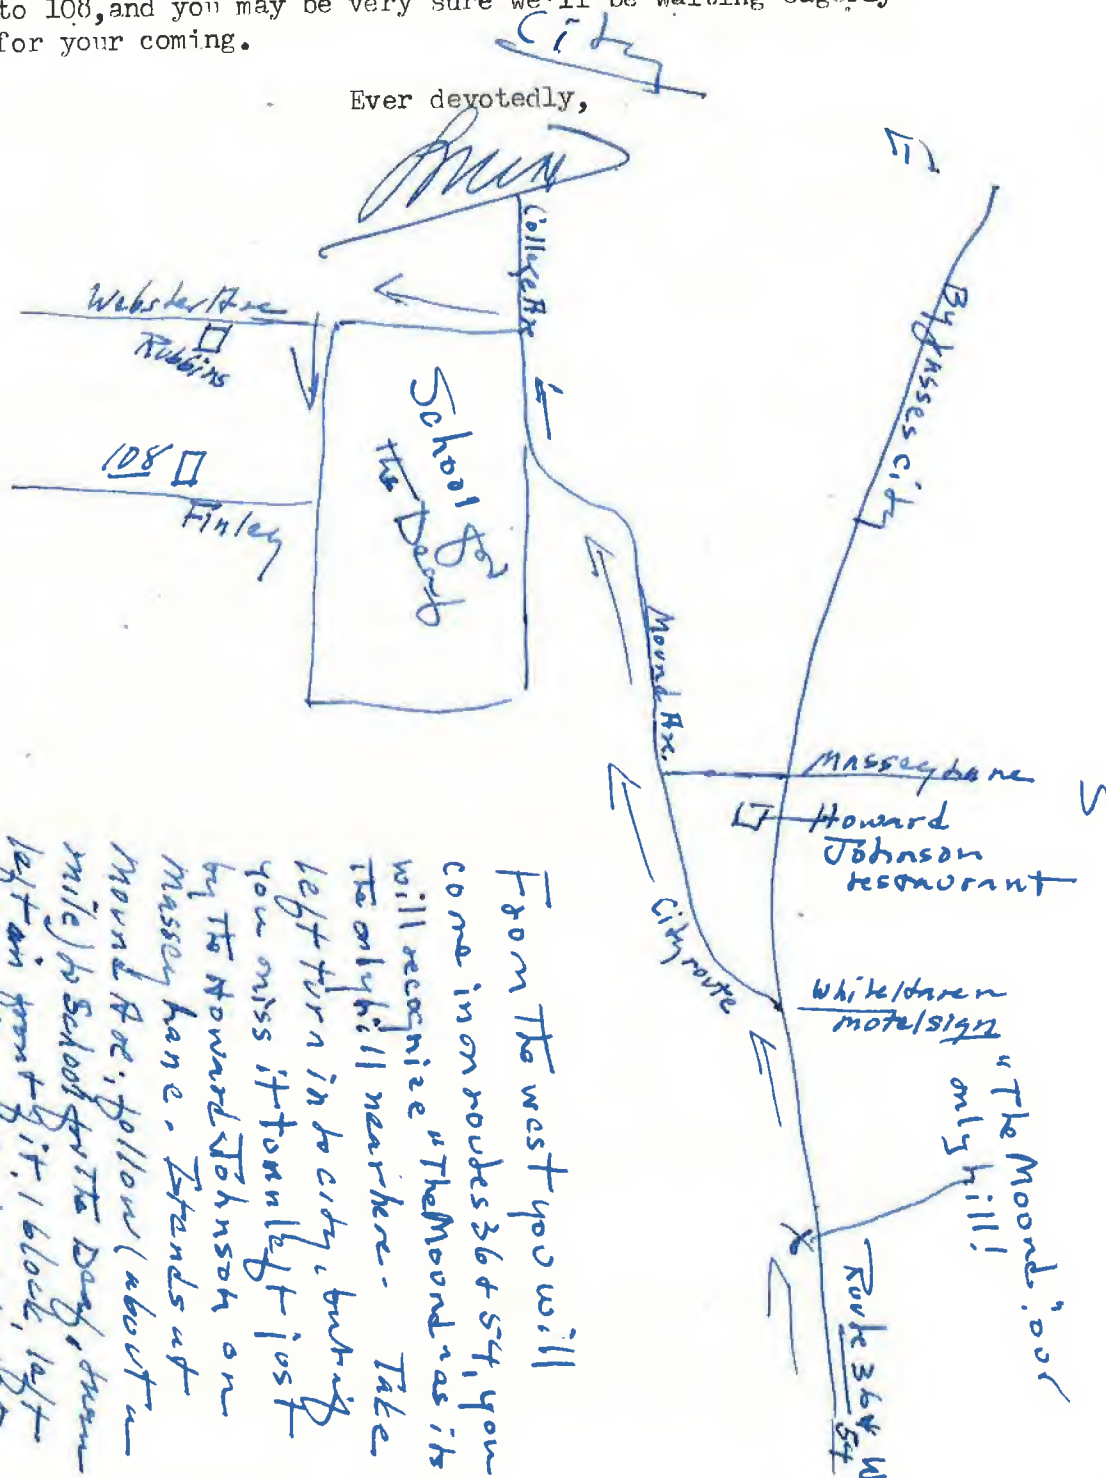 to 108, and you may be very sure we'll be waiting eagerly
for your coming.
City
Ever devotedly,
E
College Ave
Webster Ave
Robbins
108
Finley
School for
the Deaf
Bypasses city
Mound Ave.
Massey Lane
S
Howard
Johnson
restaurant
City route
White Haven
motel sign
"The Mound" our
only hill!
Route 36 & 54
W
From the west you will
come in on routes 36 & 54, you
will recognize "The Mound" as its
the only hill near here. Take
left turn into city, but if
you miss it turn left just
by the Howard Johnson on
Massey Lane. It ands at
Mound Ave; follow (about a
mile) to School for the Deaf, turn
left in front of it. 1 block, left